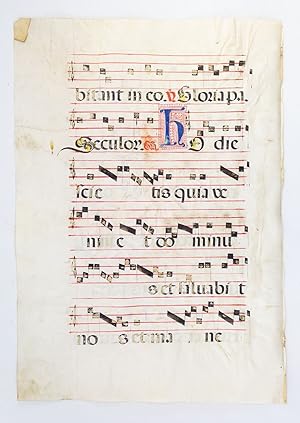 bitant in eo ℣ Gloria pa.
Seculor H O die
scie tis quia ve
ni e t do minu
s et salvabit
no s et ma ne